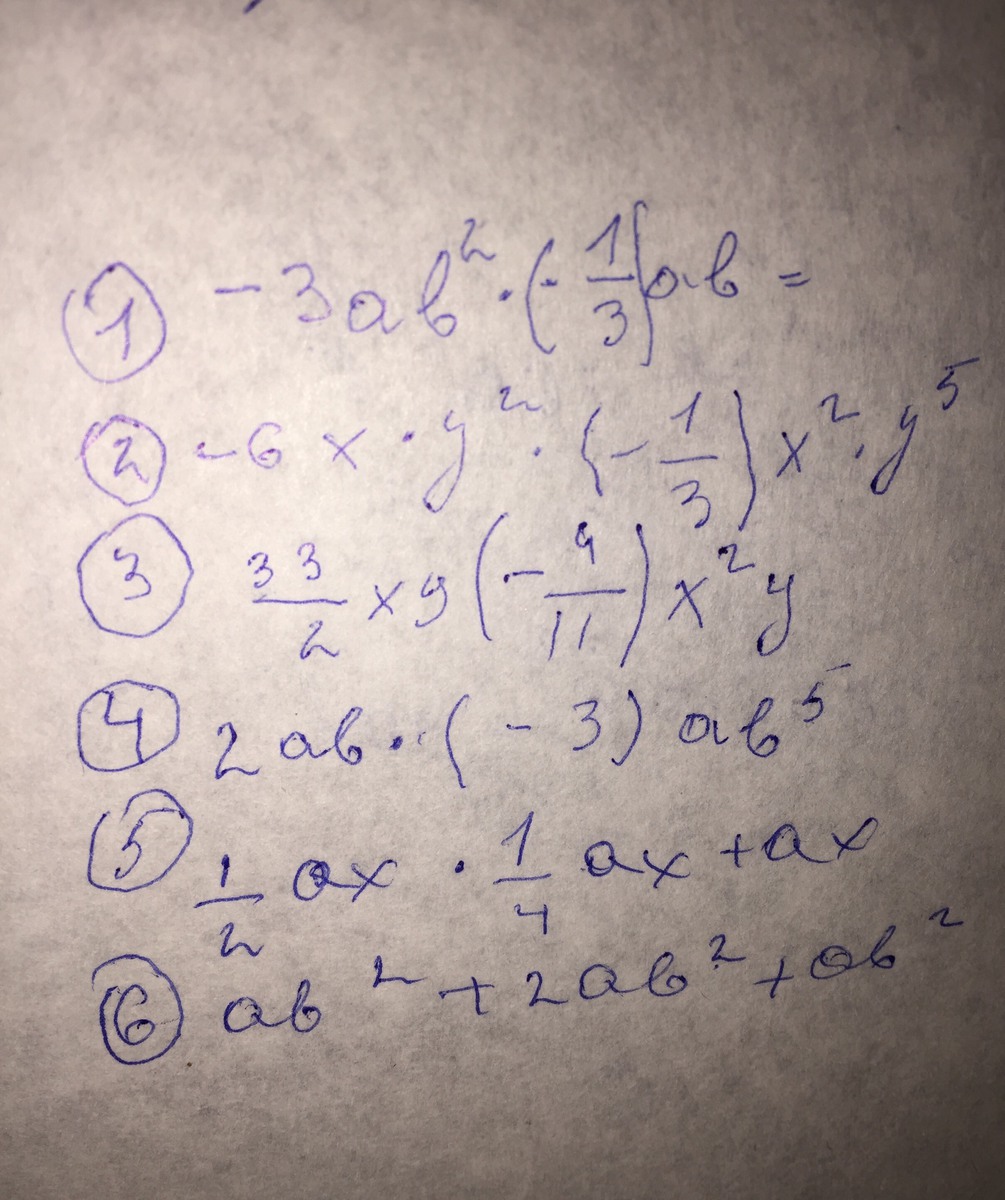 ① -3ab² · (-1/3)ab =
② -6x · y² · (-1/3)x² · y⁵
③ 33/2 xy (-4/11) x²y
④ 2ab · (-3) ab⁵
⑤ 1/2 ax · 1/4 ax + ax
⑥ ab² + 2ab² + ab²